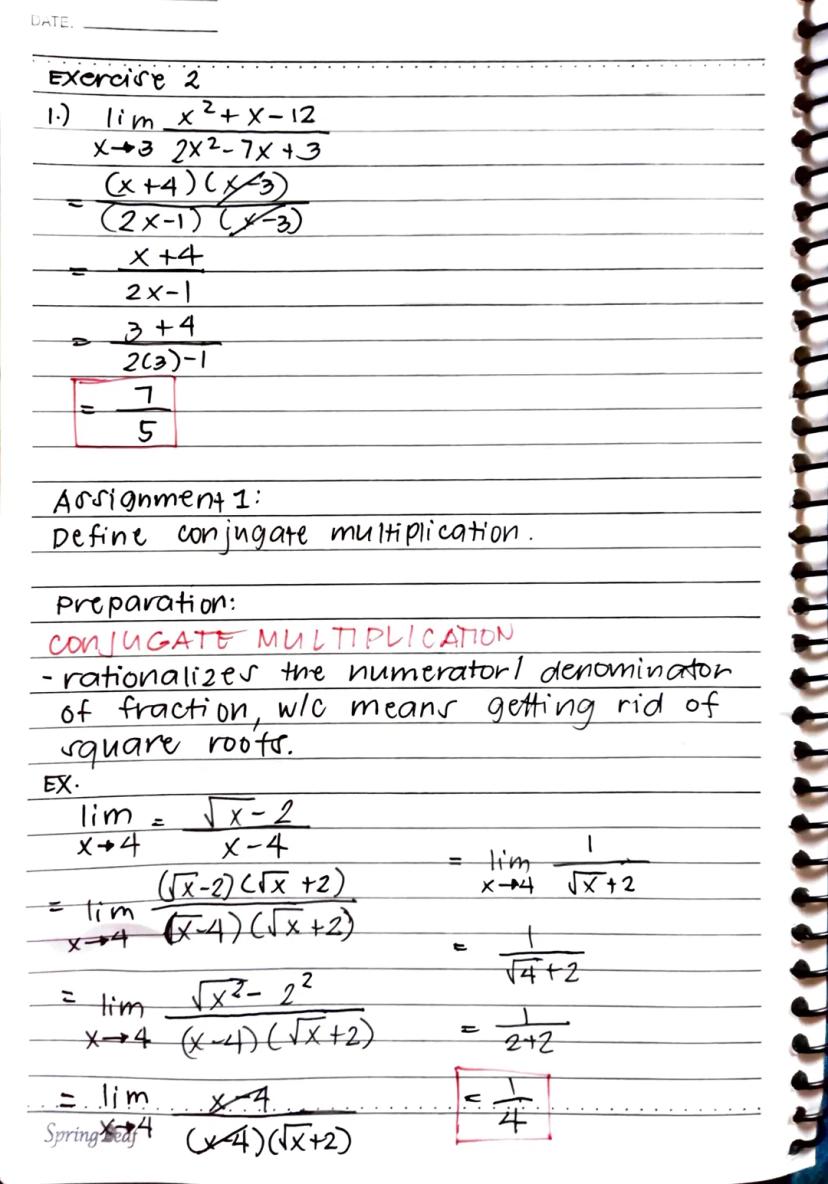 DATE:
Exercise 2
1.) lim x→3 (x² + x - 12)/(2x² - 7x + 3)
= ((x+4)(x-3))/((2x-1)(x-3))
= (x+4)/(2x-1)
= (3+4)/(2(3)-1)
= 7/5
Assignment 1:
Define conjugate multiplication.
Preparation:
CONJUGATE MULTIPLICATION
- rationalizes the numerator/ denominator
of fraction, w/c means getting rid of
square roots.
EX.
lim x→4 = (√x - 2)/(x - 4)
= lim x→4 ((√x-2)(√x+2))/((x-4)(√x+2))
= lim x→4 (√x² - 2²)/((x-4)(√x+2))
= lim x→4 (x-4)/((x-4)(√x+2))
= lim x→4 1/(√x+2)
= 1/(√4+2)
= 1/(2+2)
= 1/4
Spring Leaf